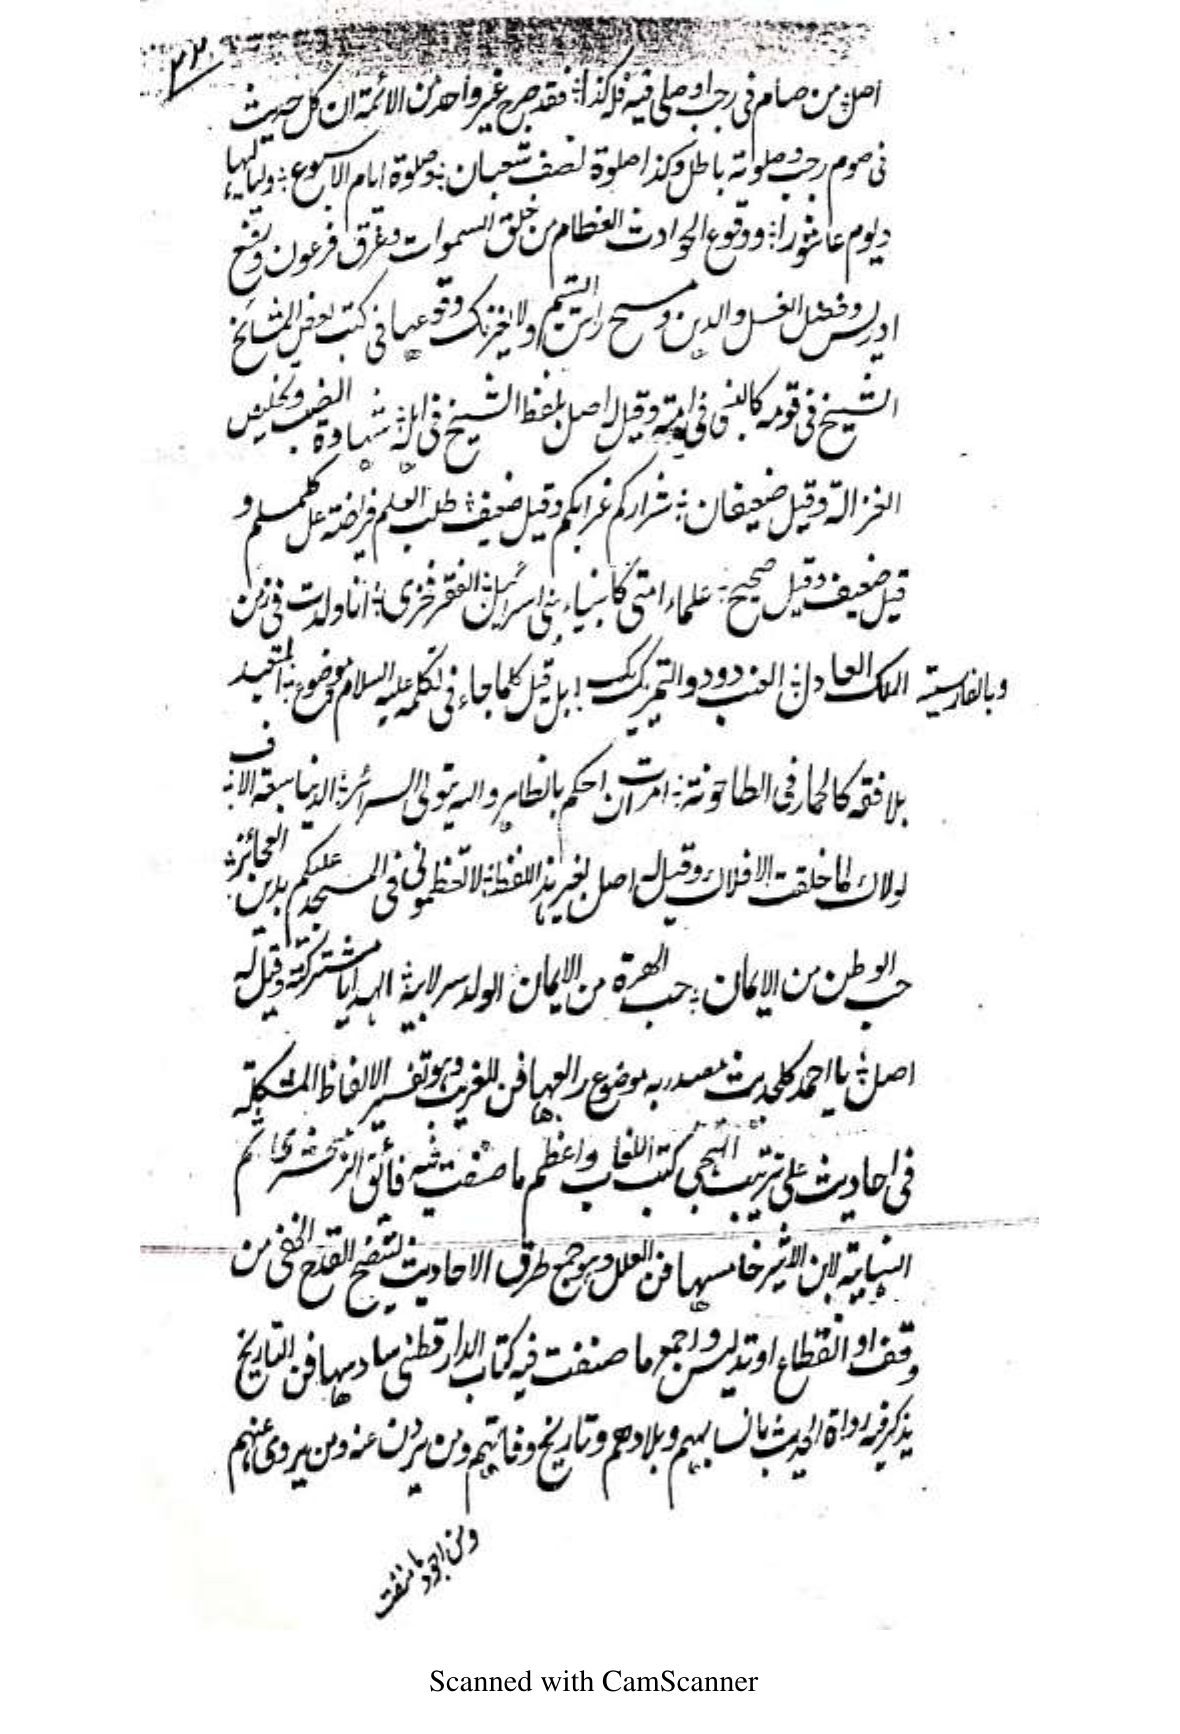 ٢٢٠
اصل من صام في رجب وصلى فيه فله كذا فقد صرح غير واحد من الائمة ان كل حديث
في صوم رجب وصلوته باطل وكذا صلوة نصف شعبان وصلوة ايام الاسبوع ولياليها
ويوم عاشورا ووقوع الحوادث العظام من خلق السموات وغرق فرعون ورفع
ادريس وفضل الغسل والدين ومسح راس اليتيم ولا يغرنك وقوعها في كتب بعض المشائخ
الشيخ في قومه كالنبي في امته وقيل اصل بلفظ الشيخ في اهله شهادة الضب وتخليص
الغزالة وقيل ضعيفان شراركم عزابكم وقيل ضعيف طلب العلم فريضة على كل مسلم و
قيل ضعيف وقيل صحيح علماء امتي كانبياء بني اسرائيل الفقر فخري انا ولدت في زمن
الملك العادل العنب دو دو والتمر يك يك بل قيل كلما جاء في تكلمه عليه السلام موضوع المتعبد
وبالفارسية
بلا فقه كالحمار في الطاحونة امرت ان احكم بالظاهر والله يتولى السرائر الدنيا سبعة الاف
لولاك لما خلقت الافلاك وقيل له اصل لغير هذا اللفظ لا تعظموني في المسجد عليكم بدين العجائز
حب الوطن من الايمان حب الهرة من الايمان الولد سر لابيه الهدايا مشتركة وقيل له
اصل يا احمد كل حديث مصدر به موضوع رابعها فن الغريب وهو تفسير الالفاظ المشكلة
في احاديث على ترتيب التهجي كتب اللغات واعظم ما صنفت فيه فائق الزمخشري ثم
النهاية لابن الاثير خامسها فن العلل وهو جمع طرق الاحاديث ليتضح القدح الخفي من
وقف او انقطاع او تدليس واجمع ما صنفت فيه كتاب الدارقطني سادسها فن التاريخ
يذكر فيه رواة الحديث بانسابهم وبلادهم وتاريخ وفاتهم ومن يروون عنه ومن يروى عنهم
ومن اجود ما صنفت
Scanned with CamScanner